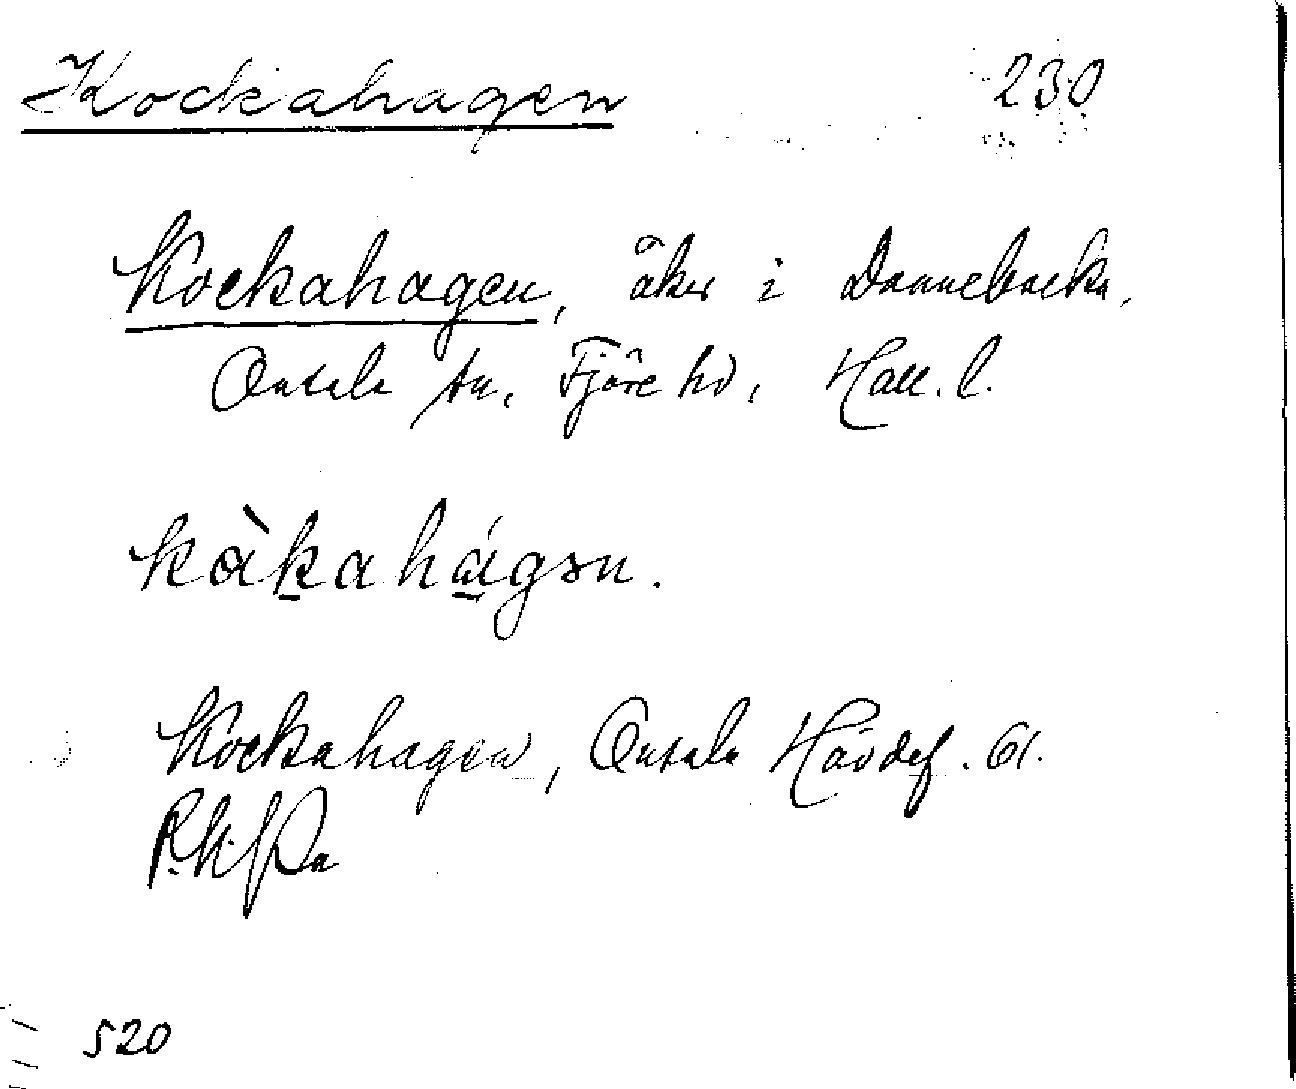 Kockahagen 230
Kockahagen, åker i Dannebacka,
Onsala sn, Fjäre hd, Hall. l.
kàkahágən.
Kockahagen, Onsala Hävdef. 61.
520